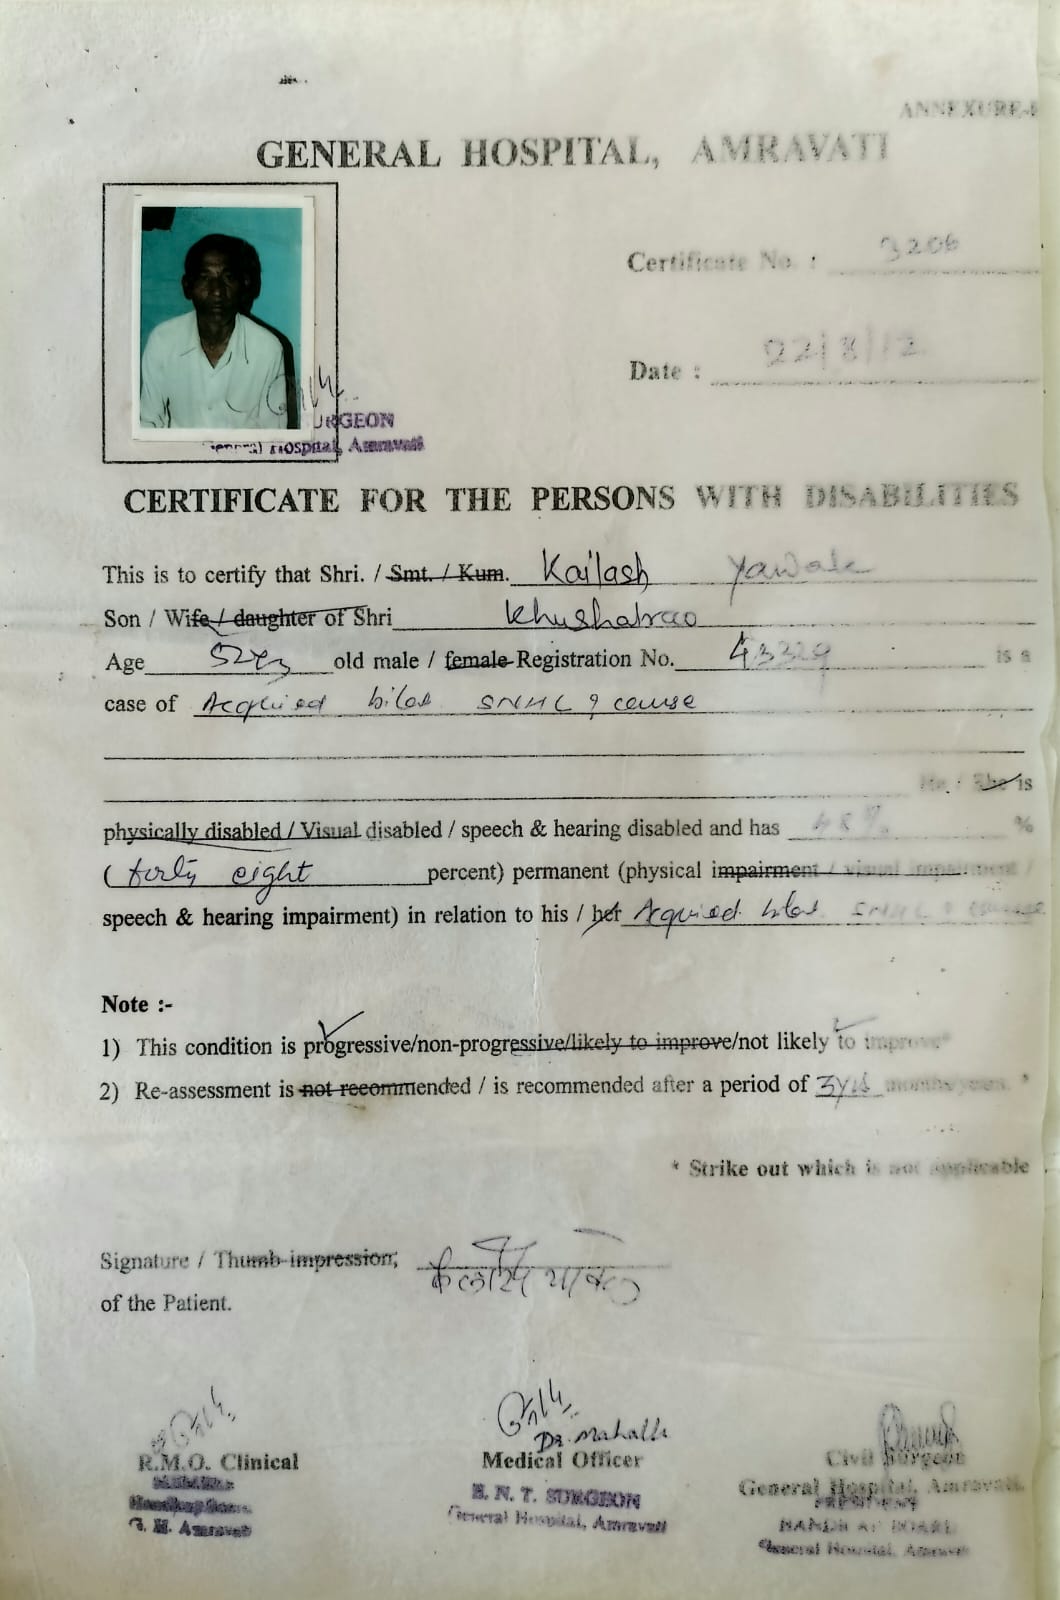 ANNEXURE-I
GENERAL HOSPITAL, AMRAVATI
Certificate No. : 3206
Date : 22/8/12
URGEON
General Hospital, Amravati
CERTIFICATE FOR THE PERSONS WITH DISABILITIES
This is to certify that Shri. / Smt. / Kum. Kailash Yawale
Son / Wife / daughter of Shri Khushalrao
Age 52yrs old male / female Registration No. 43329 is a
case of Acquired bilat SNHL ? cause
He / She is
physically disabled / Visual disabled / speech & hearing disabled and has 48% %
( forty eight percent) permanent (physical impairment / visual impairment /
speech & hearing impairment) in relation to his / her Acquired bilat SNHL ? cause
Note :-
1) This condition is progressive/non-progressive/likely to improve/not likely to improve*
2) Re-assessment is not recommended / is recommended after a period of 3yrs months/years. *
* Strike out which is not applicable
Signature / Thumb impression,
of the Patient.
Dr. Mahalle
R.M.O. Clinical Medical Officer Civil Surgeon
General Hospital, Amravati.
E. N. T. SURGEON PRESIDENT
G. H. Amravati General Hospital, Amravati HANDICAP BOARD
General Hospital, Amravati